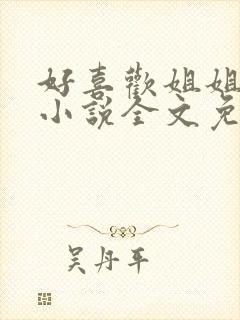 好喜歡姐姐
小說全文免
吴丹平